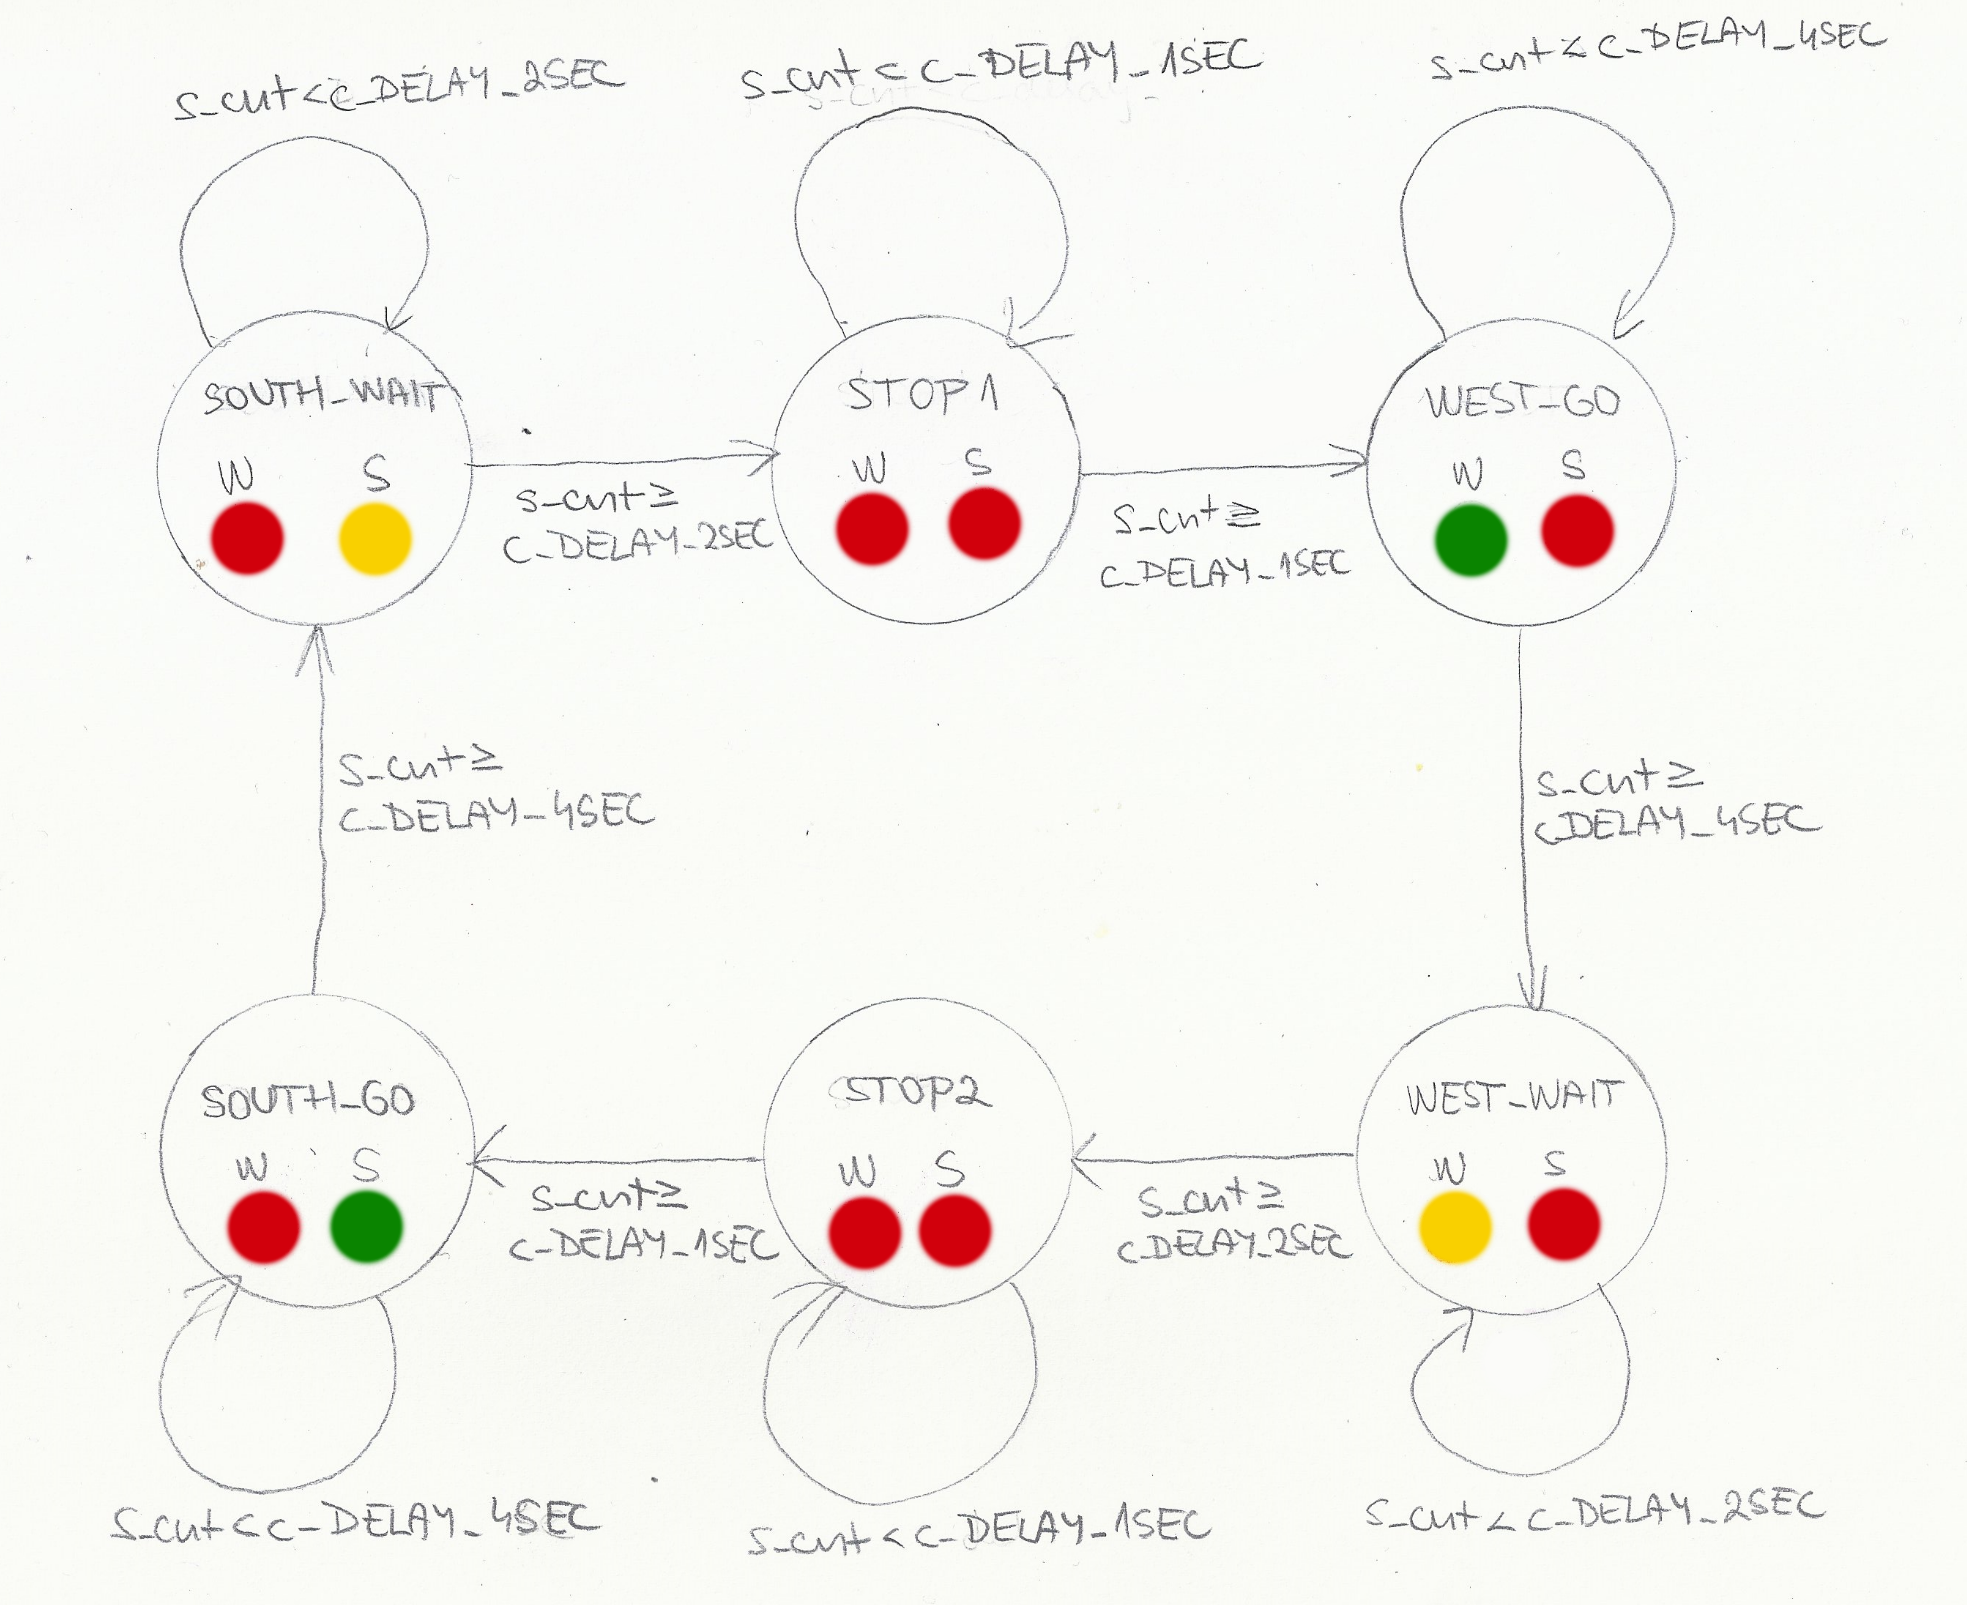 s_cnt < c_DELAY_2SEC
s_cnt < c_DELAY_1SEC
s_cnt < c_DELAY_4SEC
SOUTH_WAIT
W S
s_cnt ≥
c_DELAY_2SEC
STOP1
W S
s_cnt ≥
c_DELAY_1SEC
WEST_GO
W S
s_cnt ≥
c_DELAY_4SEC
s_cnt ≥
c_DELAY_4SEC
SOUTH_GO
W S
s_cnt ≥
c_DELAY_1SEC
STOP2
W S
s_cnt ≥
c_DELAY_2SEC
WEST_WAIT
W S
s_cnt < c_DELAY_4SEC
s_cnt < c_DELAY_1SEC
s_cnt < c_DELAY_2SEC